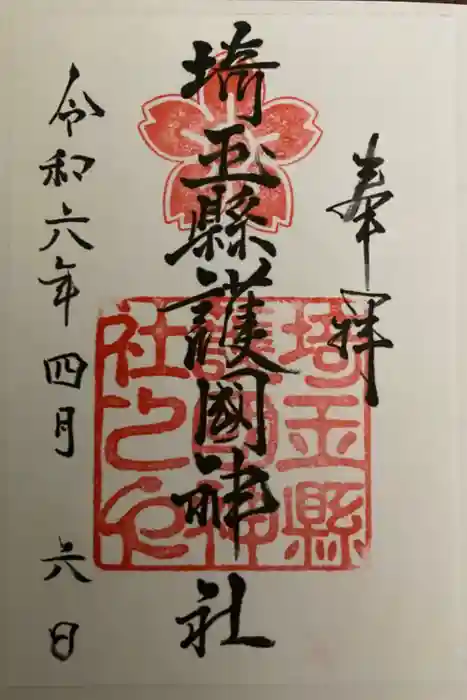 奉拝
埼玉縣護國神社
令和六年四月六日
埼玉縣
護國神
社之印